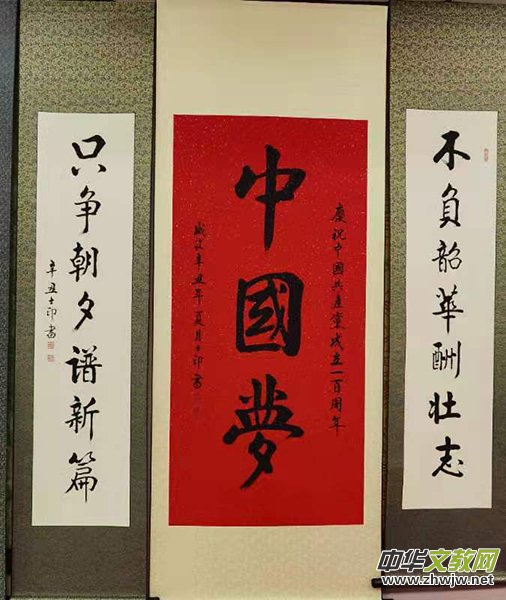 不负韶華酬壮志
慶祝中國共産黨成立一百周年
中國夢
歲次辛丑年夏月士印書
只争朝夕谱新篇
辛丑士印書
中华文教网
www.zhwjw.net